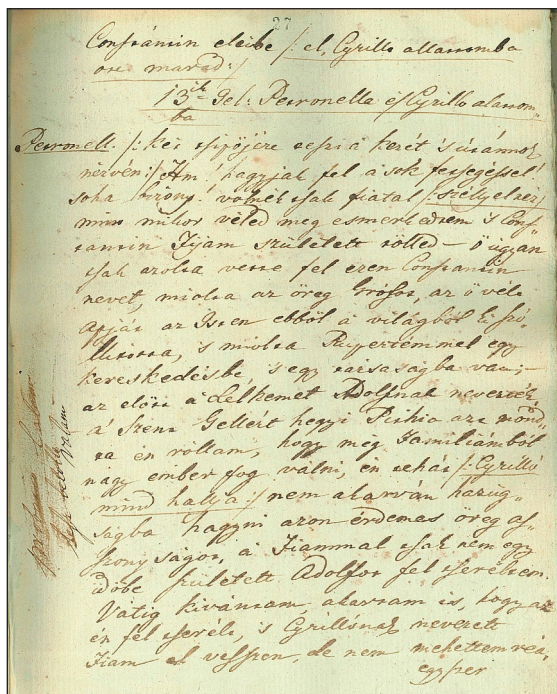 27
Constántin eleibe /: el, Cyrillo allattomba
ott marad :/
13ik Jel: Petronella és Cyrillo alattom-
ba
Petronell. /: két tsipőjére teszi a kezét 's utánnok
nézvén :/ Am! hagyják fel a sok feszegéssel!
soha bizony! volnék tsak fiatal /: sóhajt :/
mint mikor véled meg esmerkedtem 's Cons-
tantin Fijam született tőlled – ő ugyan
tsak azolta vette fel ezen Constantin
nevet, miolta az öreg Gróffot, az ő vélt
Attját az Isten ebből a' világból ki szó-
llította, 's miolta Rupertémmel egy
kereskedésbe, 's egy társaságba van; –
az előtt a' Lelkemet Adolfnak nevezték,
a' Szent Gellért hegyi Pithia azt mond-
ta én róllam, hogy még Familiámból
nagy ember fog válni, én tehát /: Cyrillo
mind hallya :/ nem akarván hazug-
ságba hagyni azon érdemes öreg asz-
szonyságot, a' Fiammal tsak nem egy
időbe született Adolfot fel tseréltem.
Vátig kivántam, akartam is, hogy az
én fel tserélt, 's Cyrillónak nevezett
Fiam el vesszen, de nem mehettem reá,
egyszer